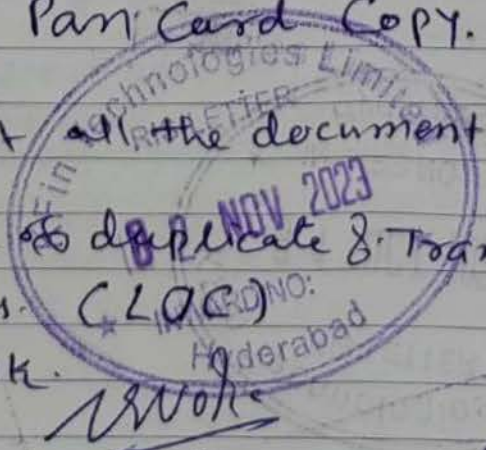 Pan Card Copy.
Fin Technologies Limite
all the document
NOV 2023
duplicate & Tran
(LOC)
INWARD NO:
Hyderabad
k.